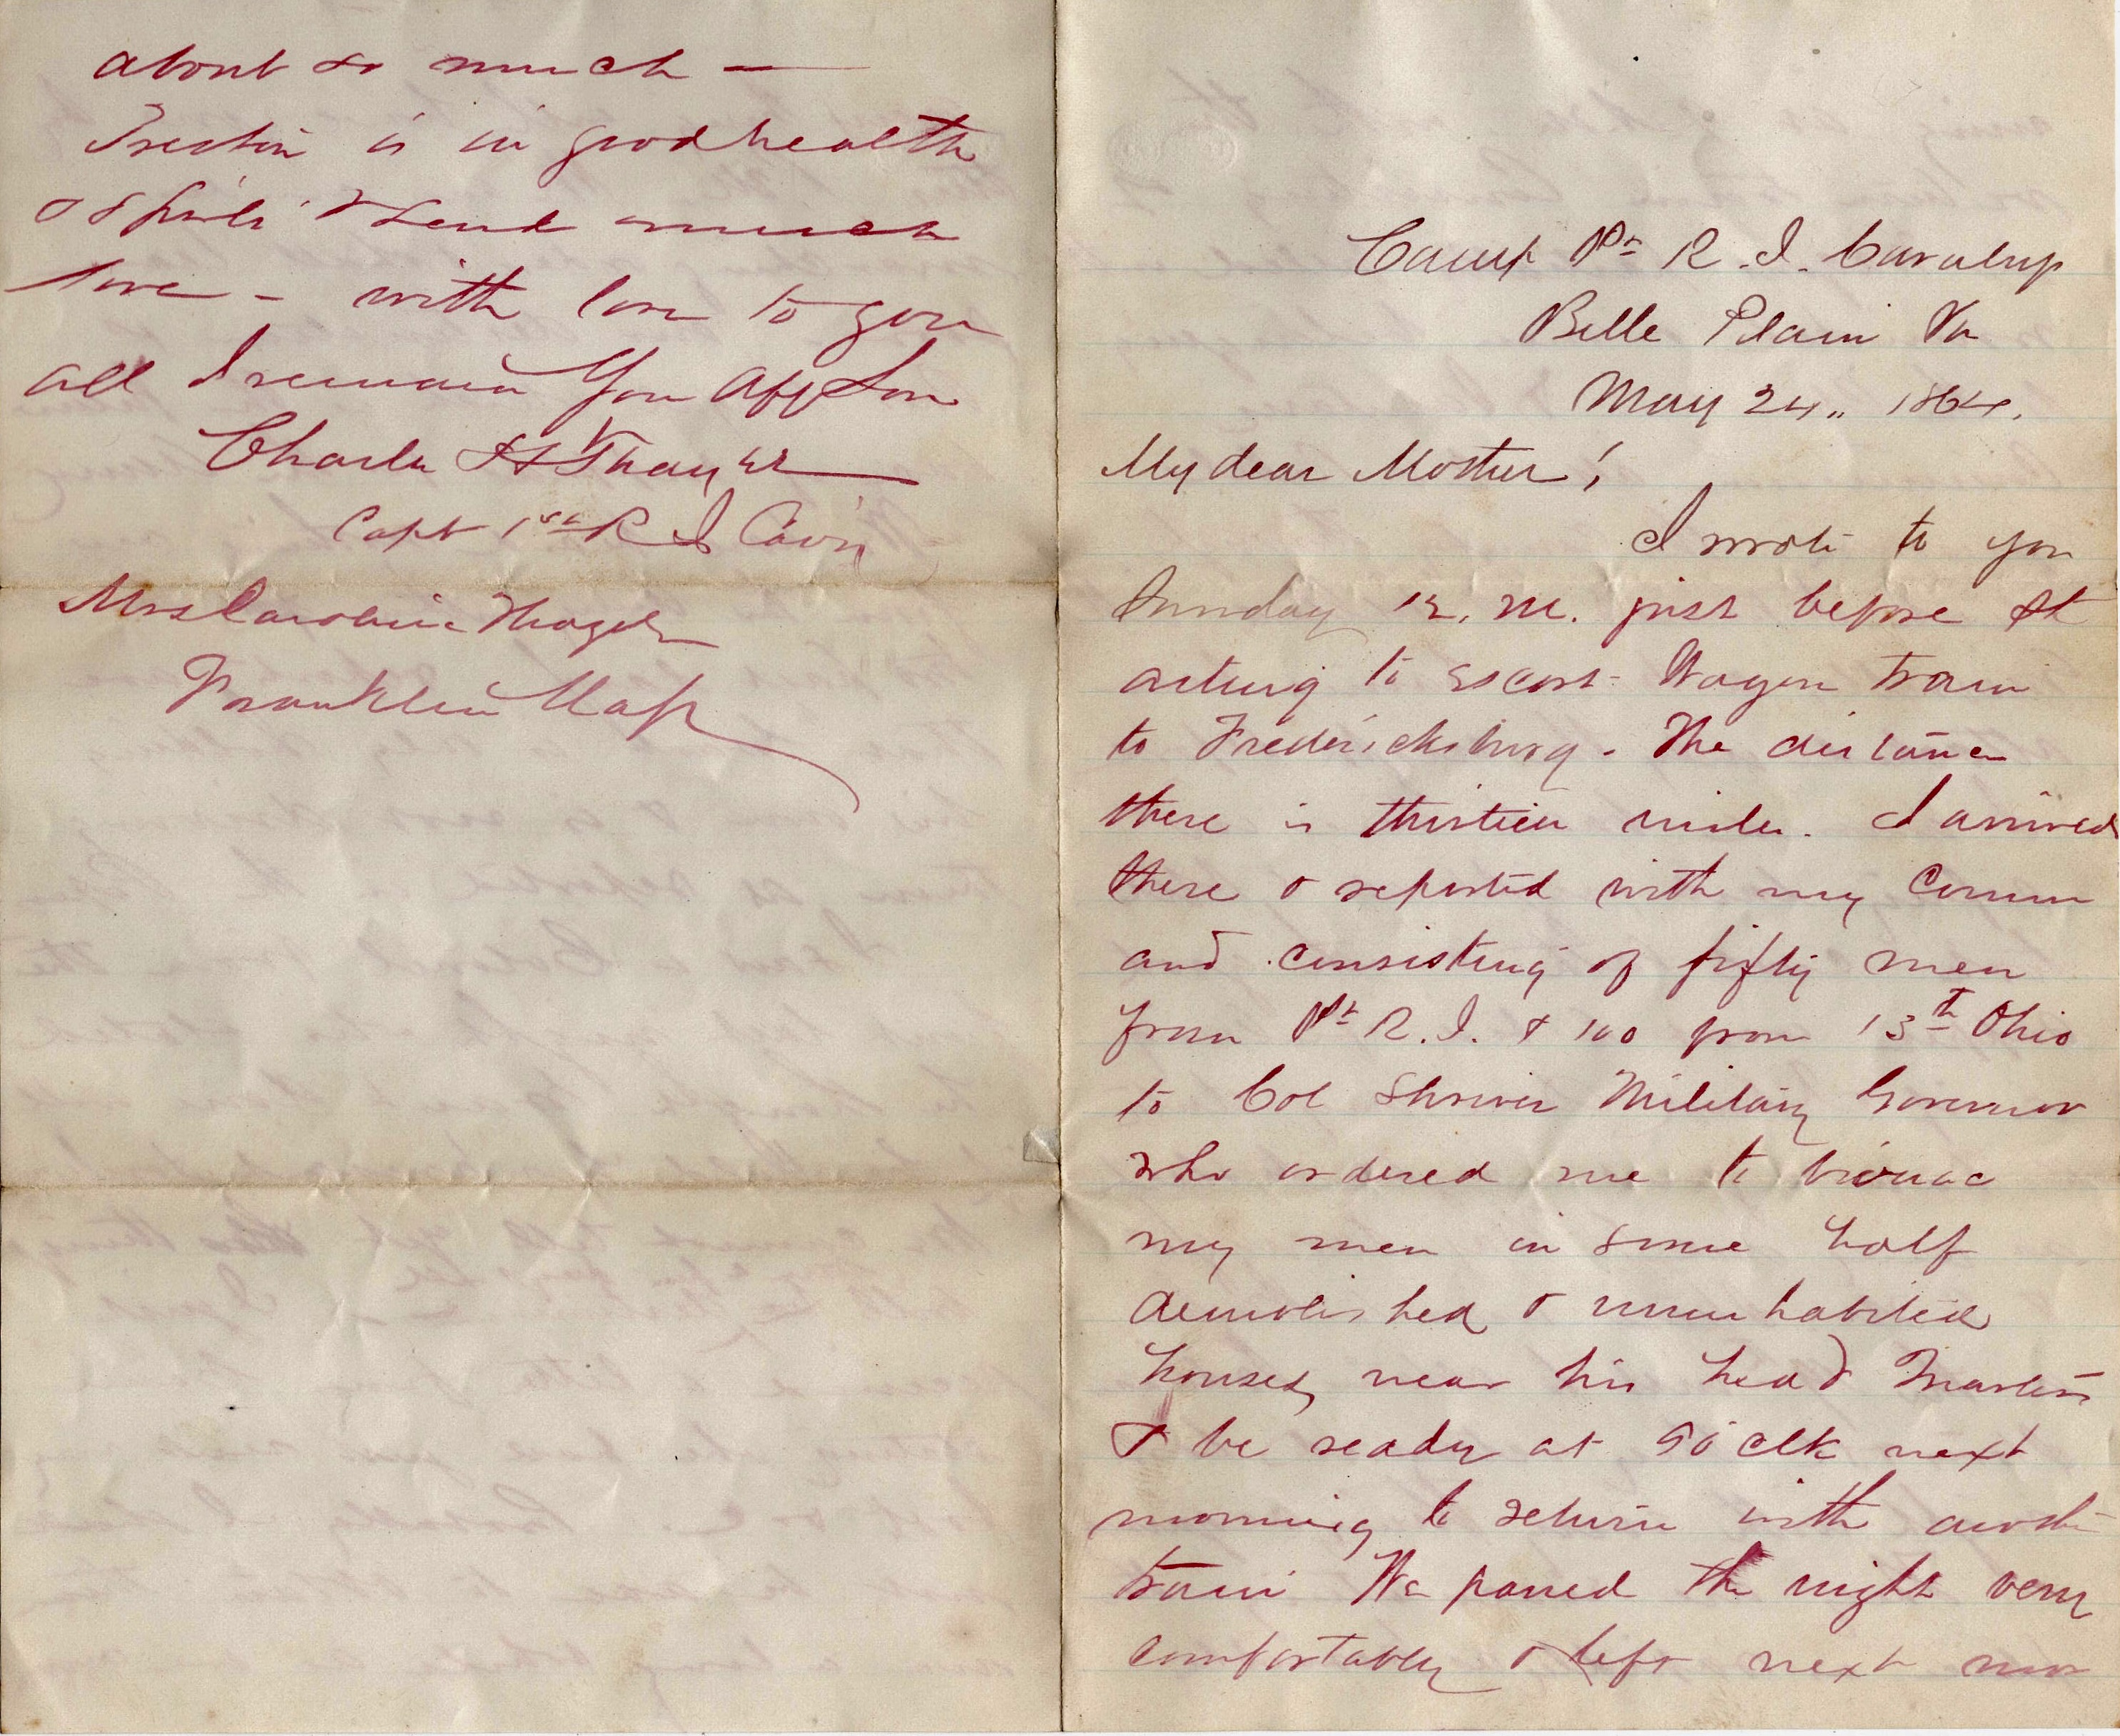 about so much —
is in good health
& spirits & send much
love - with love to you
all I remain Your Aff Son
Charles H Thayer
Capt 1st R I Cav'y
Mrs Caroline Thayer
Franklin Mass
Camp 1st R. I. Cavalry
Belle Plain Va
May 24,, 1864.
My dear Mother!
I wrote to you
Sunday 12. M. just before st
arting to escort Wagon train
to Fredericksburg. The distance
there is thirteen miles. I arrived
there & reported with my Comm
and consisting of fifty men
from 1st R. I. & 100 from 13th Ohio
to Col Shriver Military Governor
who ordered me to bivouac
my men in some half
demolished & uninhabited
houses, near his head Quarters
& be ready at 5 o'clk next
morning to return with anoth
train We passed the night very
comfortably & left next mor